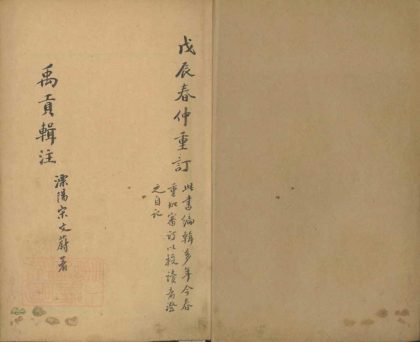 戊辰春仲重訂
此書編輯多年今春
重加審訂以稿讀者澄
之自記
禹貢輯注
溧陽宗文蔚著